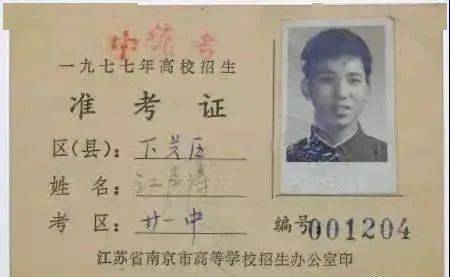 一九七七年高校招生
准考证
区(县)：下关区
姓名：江
考区：廿一中
编号 001204
江苏省南京市高等学校招生办公室印